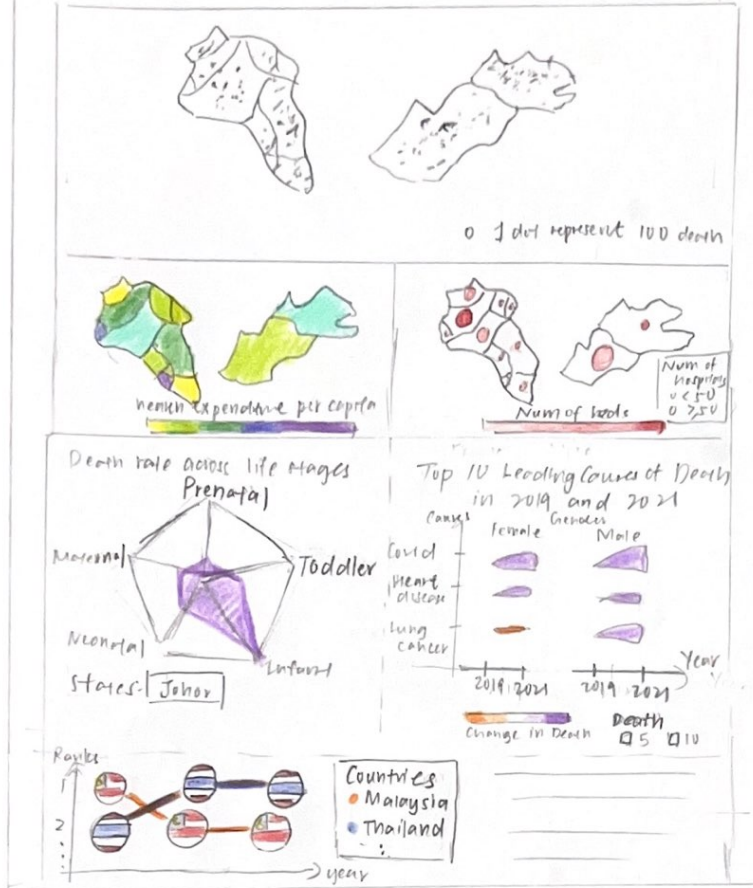 0 1 dot represent 100 death
Health Expenditure per capita
Num of beds
Num of
hospitals
0 < 50
0 > 50
Death rate across life stages
Prenatal
Maternal
Toddler
Neonatal
Infant
States: Johor
Top 10 Leading Causes of Death
in 2019 and 2021
Causes
Gender
Female
Male
Covid
Heart
disease
Lung
cancer
Year
2019 2021
2019 2021
Change in Death
Death
5 10
Ranks
1
2
Countries
Malaysia
Thailand
year